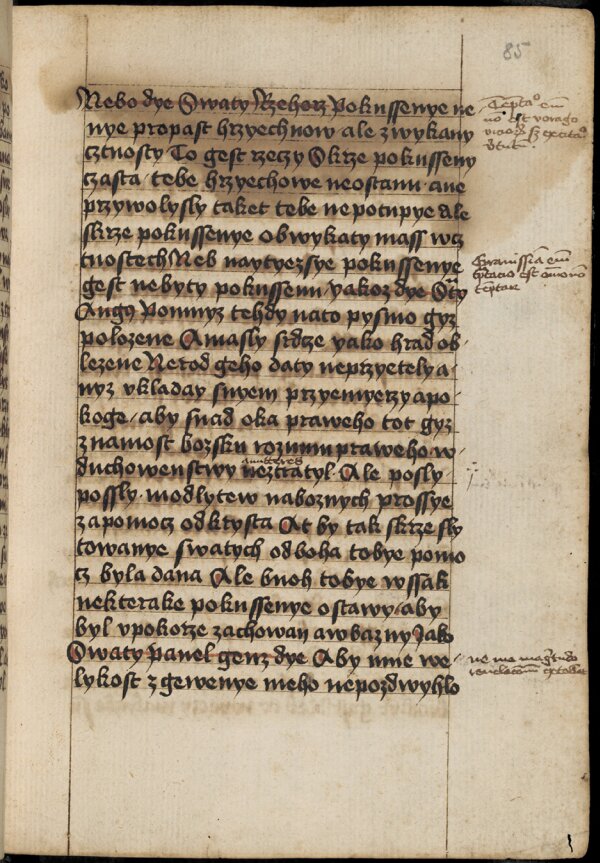 85
Nebo dye Swaty Rzehorz Pokussenye ne
nye propast hrzyechnow ale zwykany
cztnosty To gest rzeczy Skrze pokusseny
czasta tebe hrzyechowe neostanu ane
przywolysly taket tebe nepotupye ale
skrze pokussenye obwykaty mass wcz
tnostech Neb naytyezsye pokussenye
gest nebyty pokussenu yakoz dye Sty
Angus Pomnyz tehdy nato pysmo gyz
polozene A masly srdze yako hrad ob
lezene Nerod geho daty neprzyetely a
nyz vkladay snyem przyemyerzy apo
koge aby snad oka praweho tot gyz
znamost bozsku rozumu praweho w
duchowenstwy neztratyl Ale posly
possly modlytew naboznych prossye
zapomocz odkrysta At by tak skrze sly
towanye swatych odboha tobye pomo
cz byla dana Ale buoh tobye wssak
nekterake pokussenye ostawy aby
byl vpokorze zachowan awbazny Jako
Swaty Pawel genz dye Aby mne we
lykost zgewenye meho nepozdwyhlo
ne me magnitudo